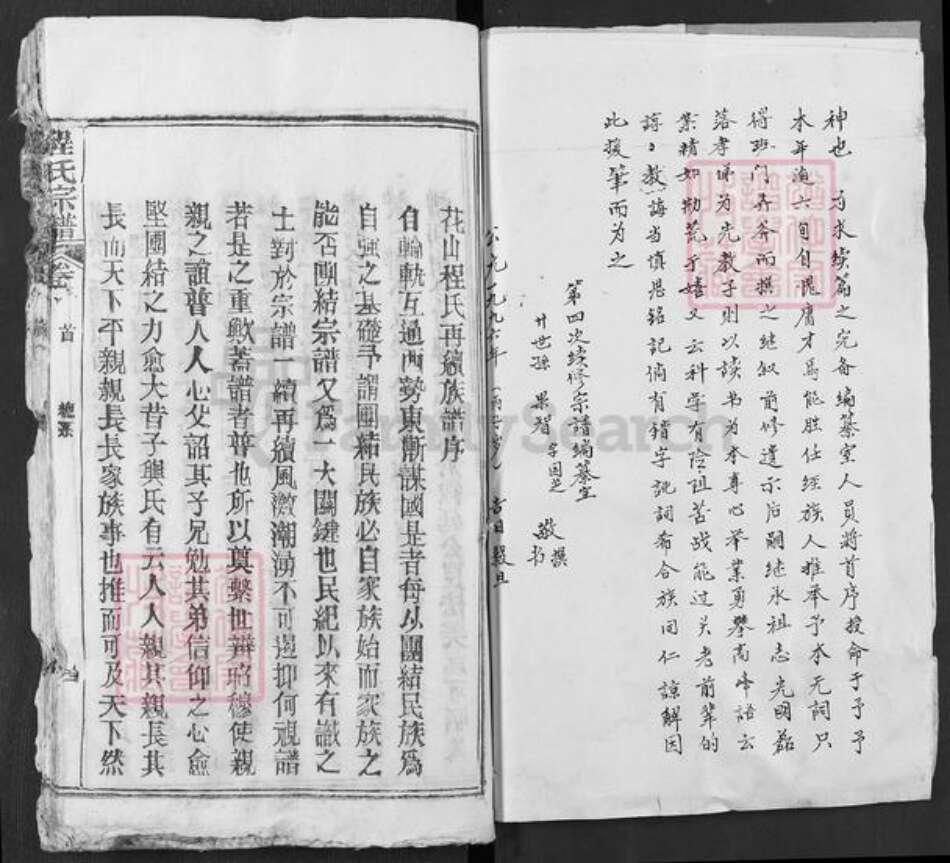 神也 为求续篇之完备编纂室人员将首序授命于予予
本年逾六旬自愧庸才焉能胜任经族人推举予本无词只
得班门弄斧而撰之继叙前修遗示后嗣继承祖志光明磊
落孝悌为先教子则以读书为本专心举业勇攀高峰语云
业精如勤荒于嬉又云科学有险阻苦战能过关老前辈的
谆々教诲当慎思铭记倘有错字讹词希合族同仁谅解因
此援笔而为之
第四次续修宗谱编纂室
廿世孙 果智 字国芝 敬撰书
公元一九九六年 丙子岁 吉日 穀旦
花山程氏再續族譜序
自輪軌互通西勢東漸謀國是者每以團結民族為
自強之基礎予謂團結民族必自家族始而家族之
能否團結宗譜又為一大關鍵也民紀以來有識之
士對於宗譜一續再續風激潮湧不可遏抑何視譜
若是之重歟蓋譜者普也所以奠繫世辯昭穆使親
親之誼普人人心父詔其子兄勉其弟信仰之心愈
堅團結之力愈大昔子輿氏有云人人親其親長其
長而天下平親親長長家族事也推而可及天下然
程氏宗譜 卷 首 總叢